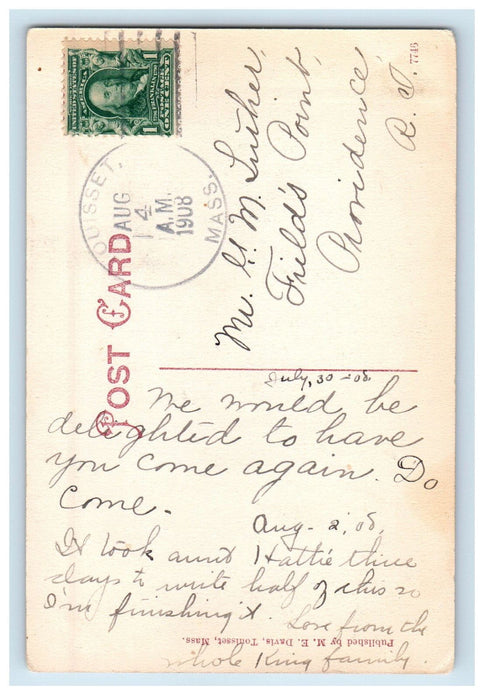 UNITED STATES OF AMERICA
1 ONE CENT 1
OUISSET,
AUG
4
A.M.
1908
MASS.
POST CARD
7746
Mr. G. M. Luther,
Field's Point,
Providence,
R. I.
July, 30 - 08.
We would be
delighted to have
you come again. Do
come.
Aug - 2, 08.
It took aunt Hattie three
days to write half of this so
I'm finishing it. Love from the
whole King family.
Published by M. E. Davis, Touisset, Mass.